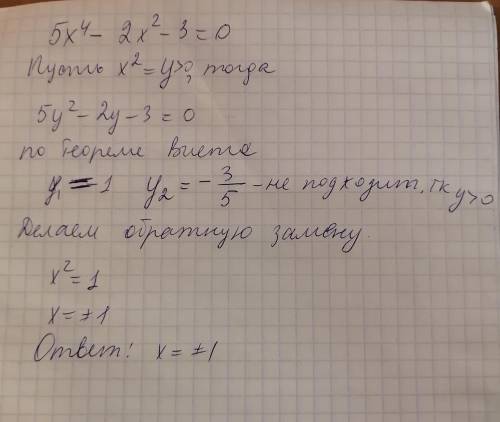 5x⁴ - 2x² - 3 = 0
Пусть x² = y>0, тогда
5y² - 2y - 3 = 0
по теореме Виета
y₁ = 1 y₂ = -3/5 - не подходит, тк y>0
Делаем обратную замену.
x² = 1
x = ±1
Ответ: x = ±1